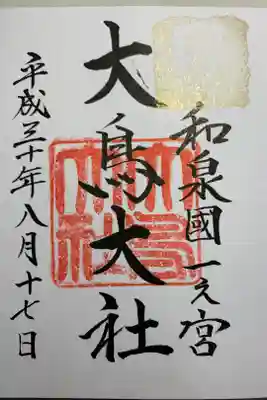 和泉國一之宮
大鳥大社
平成三十年八月十七日